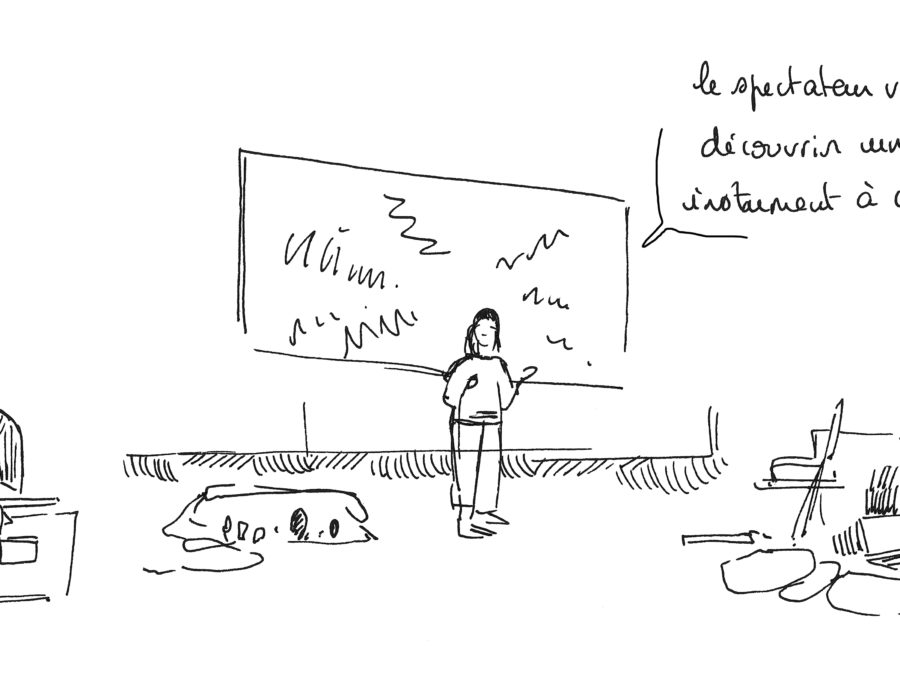 le spectateur v
découvrir un
instrument à